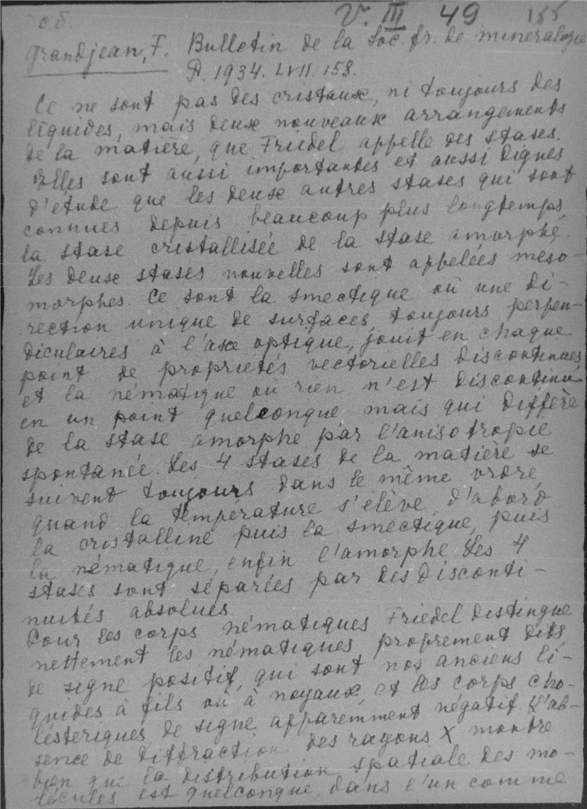 о.б. V. III 49 155
Grandjean, F. Bulletin de la Soc. fr. de mineralogie
P. 1934. LVII. 158.
Ce ne sont pas des cristaux, ni toujours des
liguides, mais deux nouveaux arrangements
de la matière, que Friedel appelle des stases.
Elles sont aussi importantes et aussi dignes
d'etude que les deux autres stases qui sont
connues depuis beaucoup plus longtemps
la stase cristallisée de la stase amorphe.
Les deux stases nouvelles sont appelées meso-
morphes. Ce sont la smectique où une di-
rection unique de surfaces toujours perpen-
diculaires à l'axe optique, jouit en chaque
point de propriétés vectorielles discontinues
et la nématique où rien n'est discontinu
en un point quelconque mais qui diffère
de la stase amorphe par l'anisotropie
spontanée. Les 4 stases de la matière se
suivent toujours dans le même ordre,
quand la température s'elève, d'abord
la cristalline puis la smectique, puis
la nématique, enfin l'amorphe. Les 4
stases sont séparées par des disconti-
nuités absolues.
Pour les corps nématiques Friedel distingue
nettement les nématiques proprement dits
de signe positif qui sont nos anciens li-
guides à fils ou à noyaux et les corps cho-
lésteriques de signe apparemment négatif. L'ab-
sence de diffraction des rayons X montre
bien que la distribution spatiale des mo-
lécules est quelconque, dans l'un comme